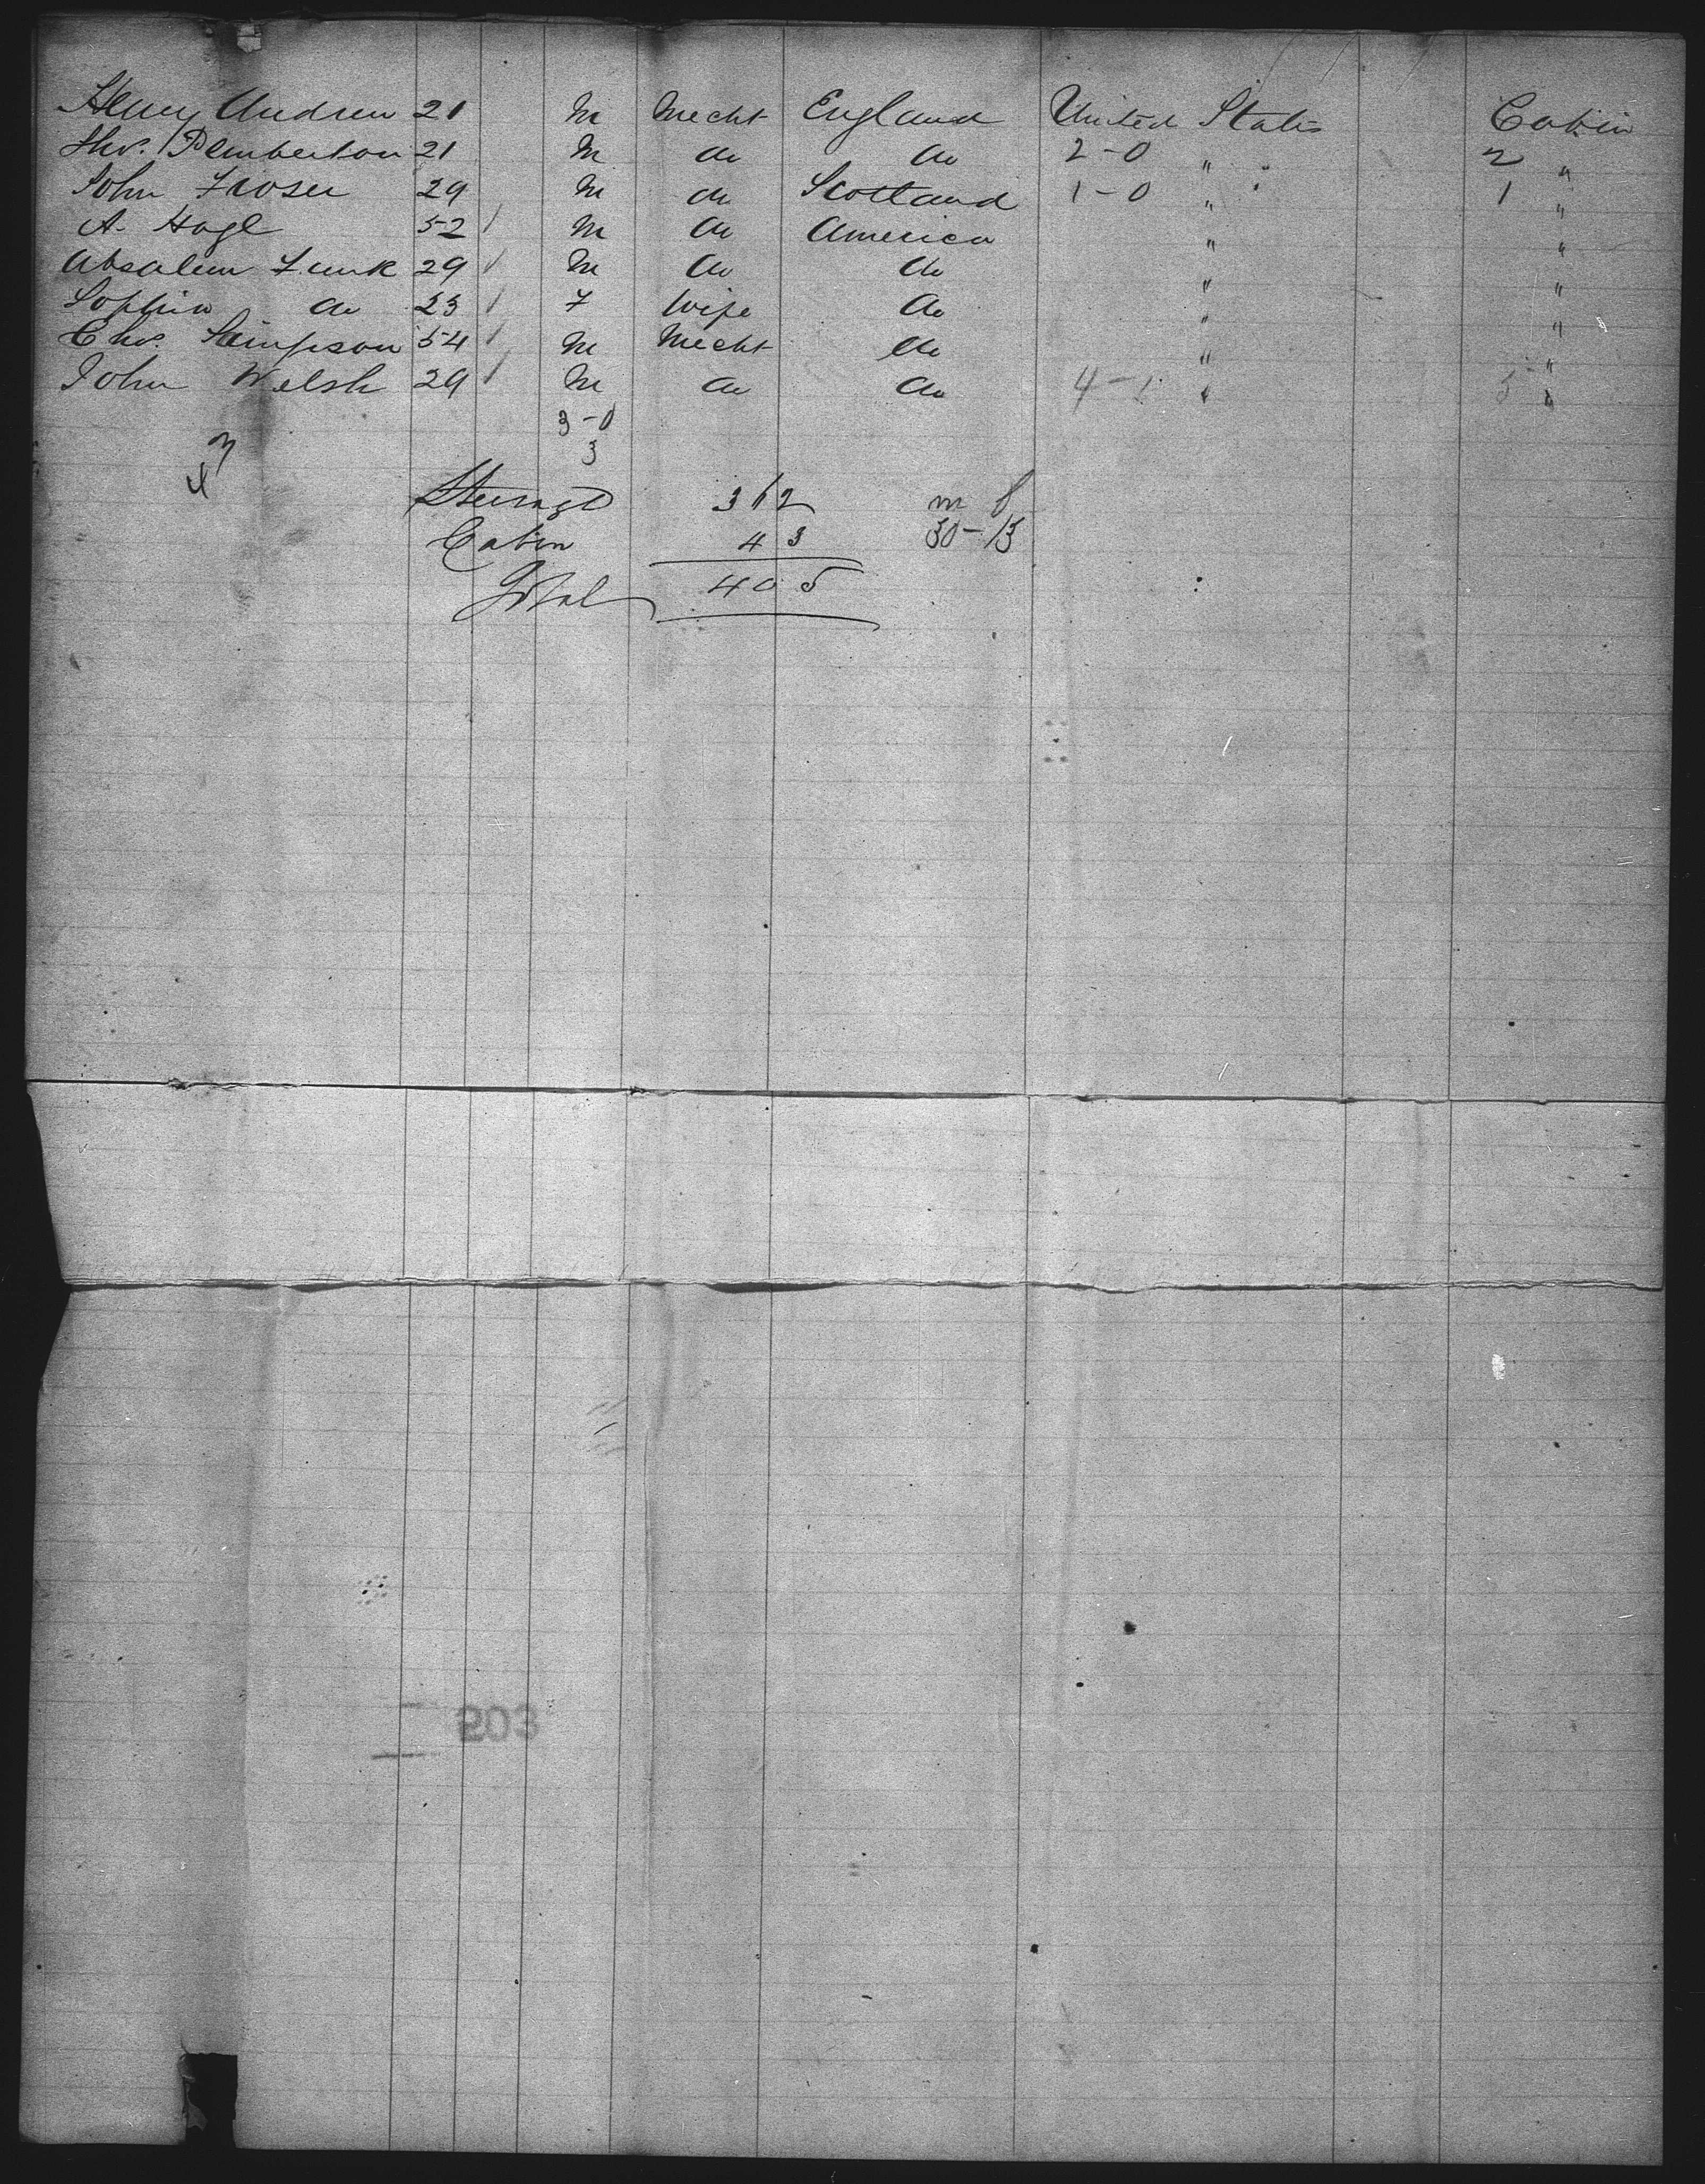 Henry Andrew 21 M Mecht England United States Cabin
Thos. Pemberton 21 M do do 2-0 " " 2 "
John Fraser 29 M do Scotland 1-0 " 1 "
A. Hagl 52 / M do America " "
Absalem Funk 29 / M do do " "
Sophia do 23 / F Wife do " "
Chs. Simpson 54 / M Mecht do " "
John Welsh 29 / M do do 4-1 " 5 "
3-0
3
3
4
Steerage 362 m f
Cabin 43 30-13
Total 405
203